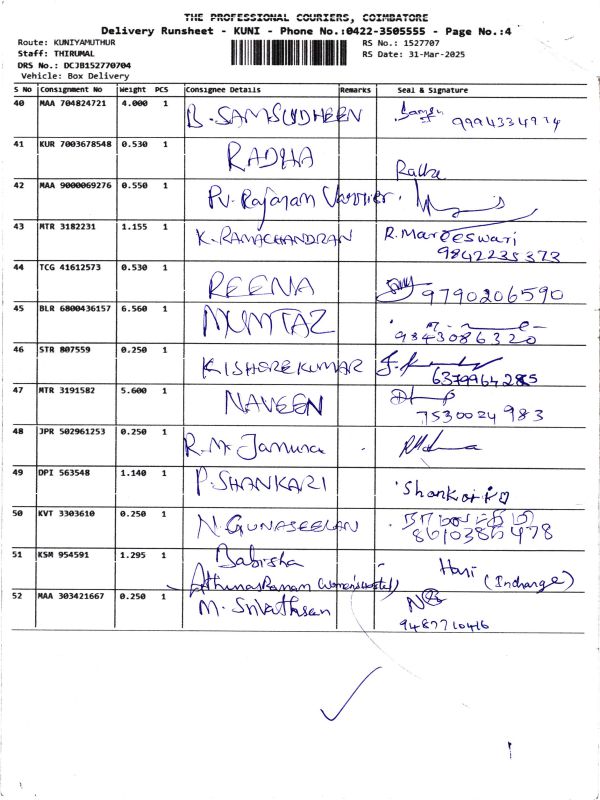 THE PROFESSIONAL COURIERS, COIMBATORE
Delivery Runsheet - KUNI - Phone No.:0422-3505555 - Page No.:4
Route: KUNIYAMUTHUR
RS No.: 1527707
Staff: THIRUMAL
RS Date: 31-Mar-2025
DRS No.: DCJB152770704
Vehicle: Box Delivery
S No Consignment No Weight PCS Consignee Details Remarks Seal & Signature
40 MAA 704824721 4.000 1 B. SAMSUDHEEN
9994334974
41 KUR 7003678548 0.530 1 RADHA
Radha
42 MAA 9000069276 0.550 1 P.V. Rajaram Varrier.
43 MTR 3182231 1.155 1 K. RAMACHANDRAN R. Mareeswari
9842235373
44 TCG 41612573 0.530 1 REENA 9790206590
45 BLR 6800436157 6.560 1 MUMTAZ
9843086320
46 STR 807559 0.250 1 KISHOREKUMAR
6379964285
47 MTR 3191582 5.600 1 NAVEEN
7530024983
48 JPR 502961253 0.250 1 R.M. Jamuna
49 DPI 563548 1.140 1 P. SHANKARI Shankari
50 KVT 3303610 0.250 1 N. GUNASEELAN
8610386478
51 KSM 954591 1.295 1 Babisha Hari (Incharge)
(Women's Hostel)
52 MAA 303421667 0.250 1 M. Srivathsan
9487710416